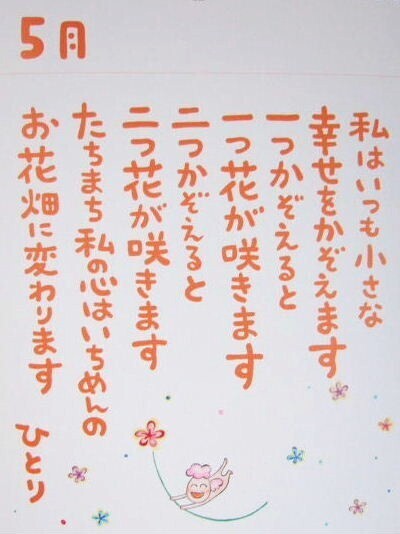 5月
私はいつも小さな
幸せをかぞえます
一つかぞえると
一つ花が咲きます
二つかぞえると
二つ花が咲きます
たちまち私の心はいちめんの
お花畑に変わります
ひとり